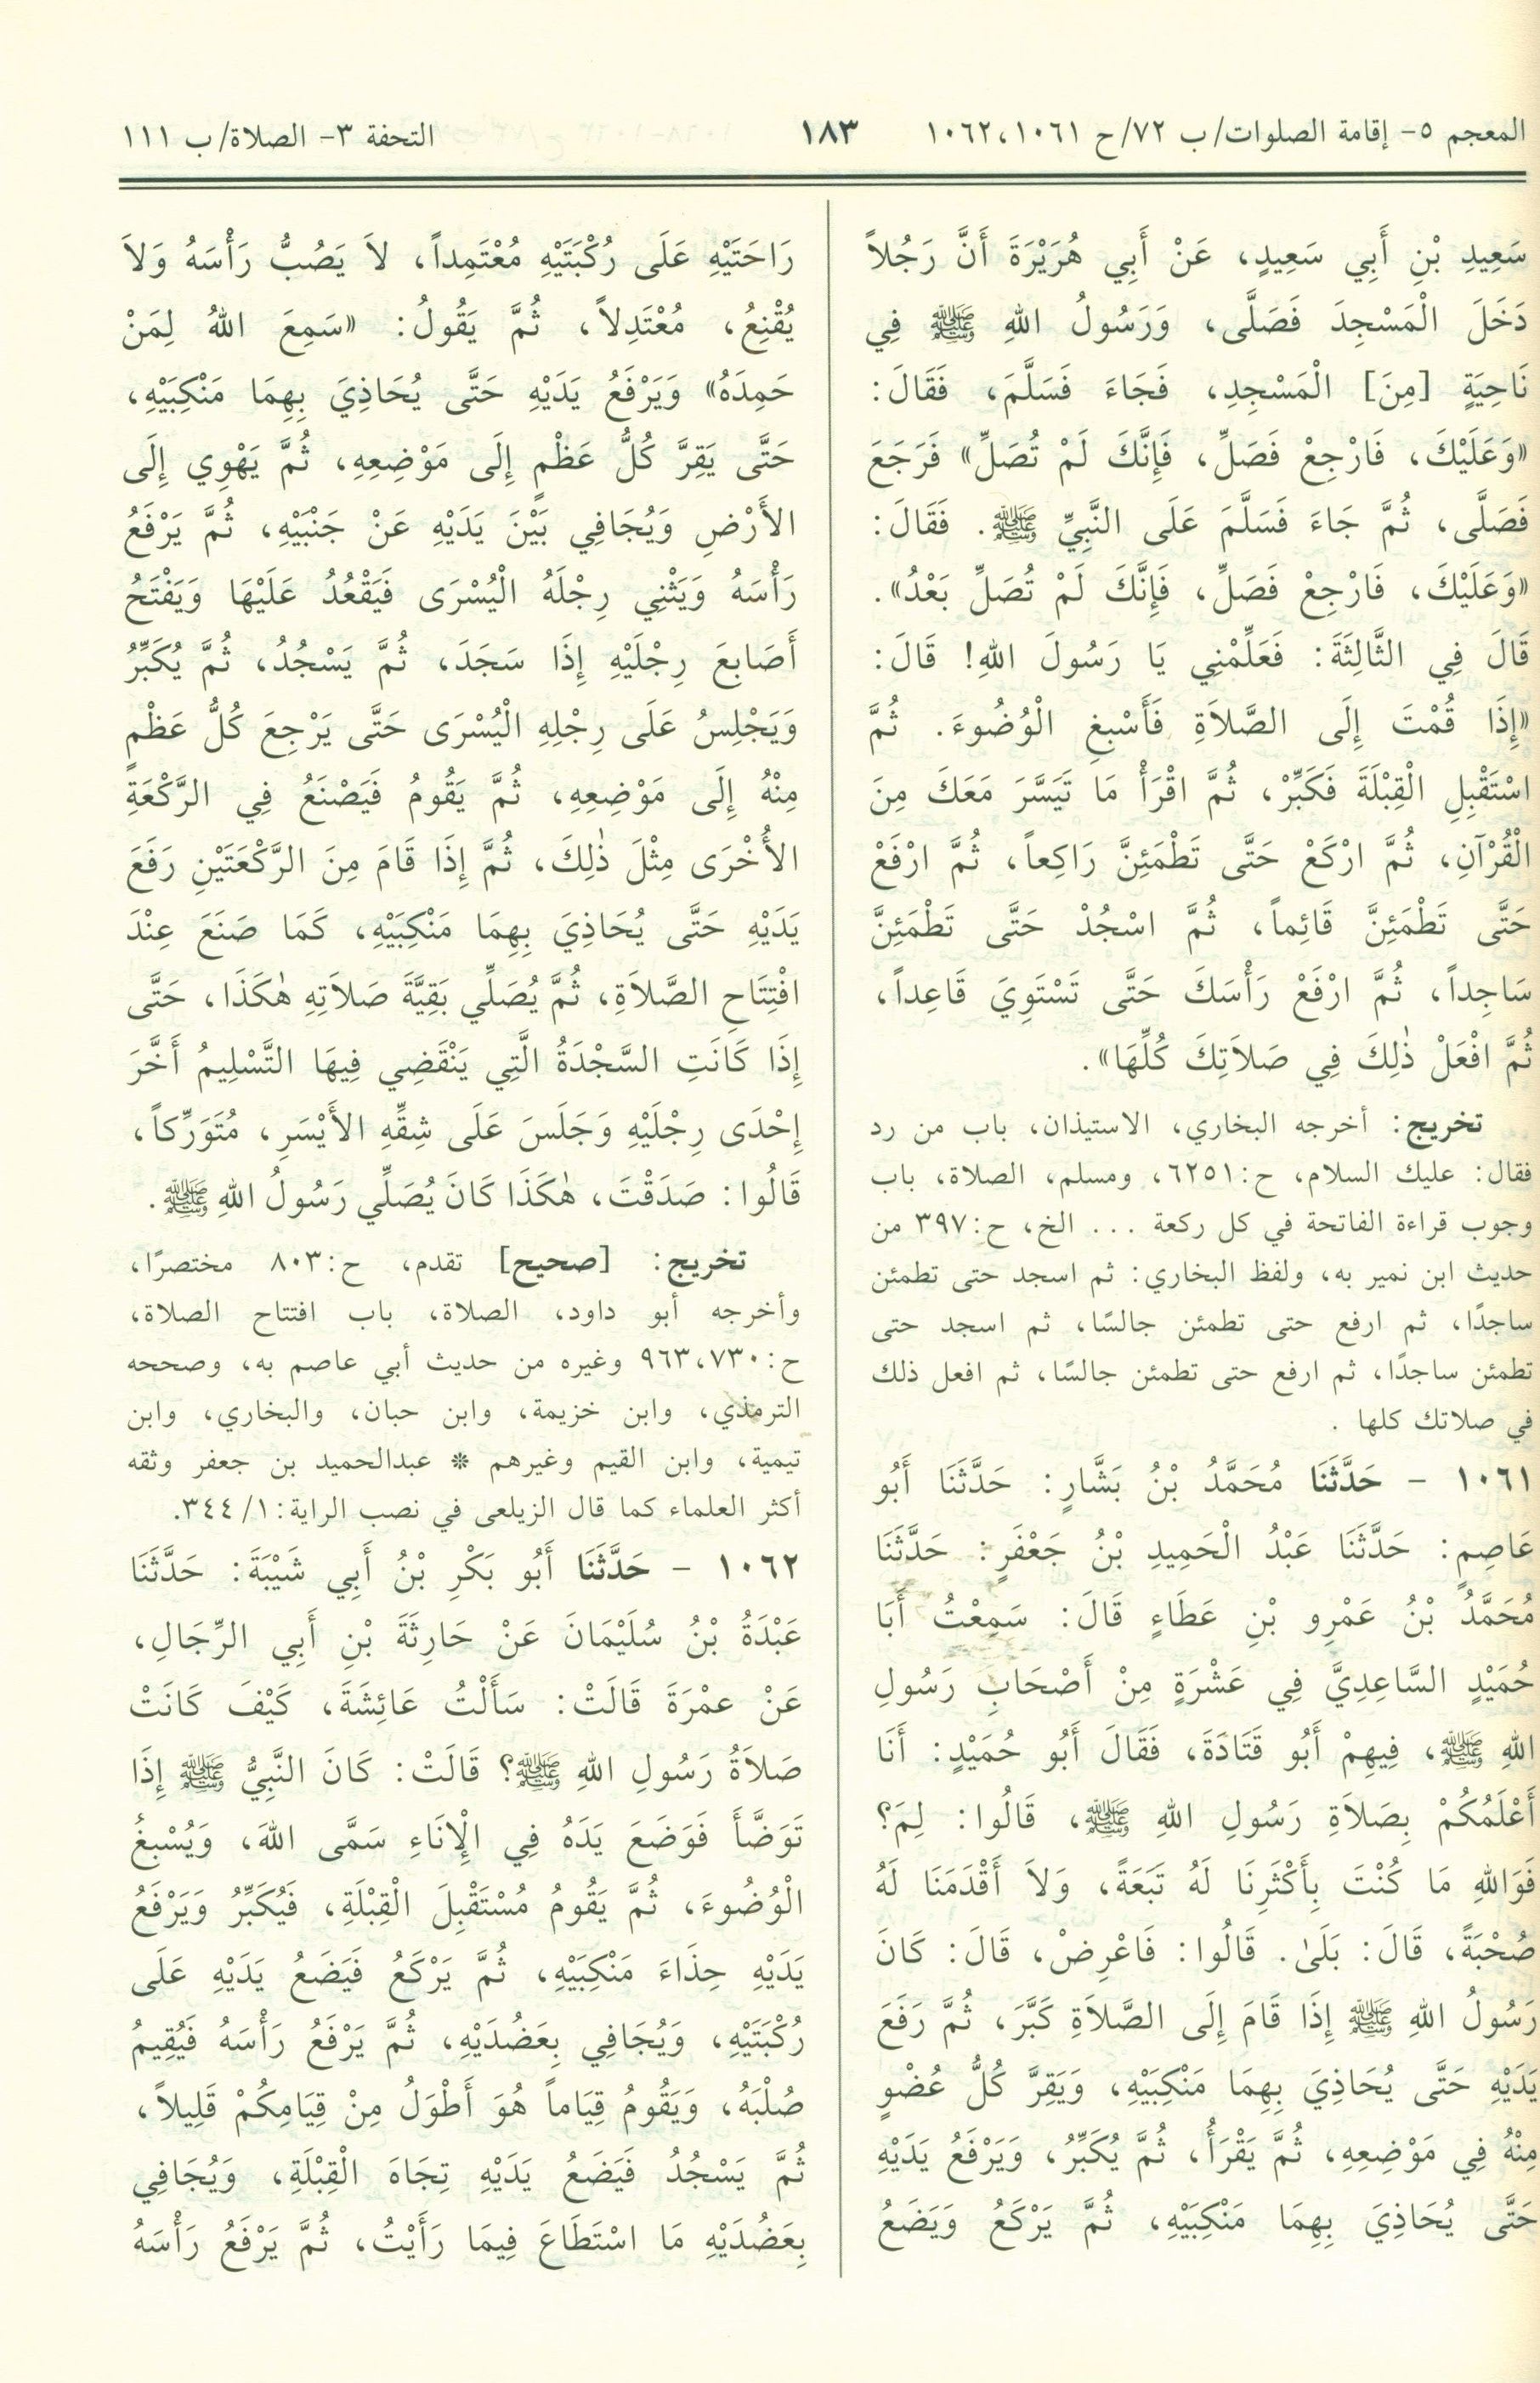 المعجم ٥- إقامة الصلوات/ ب ٧٢/ ح ١٠٦١، ١٠٦٢ ١٨٣ التحفة ٣- الصلاة/ ب ١١١
سَعِيدِ بْنِ أَبِي سَعِيدٍ، عَنْ أَبِي هُرَيْرَةَ أَنَّ رَجُلاً
دَخَلَ الْمَسْجِدَ فَصَلَّى، وَرَسُولُ اللهِ ﷺ فِي
نَاحِيَةٍ [مِنَ] الْمَسْجِدِ، فَجَاءَ فَسَلَّمَ، فَقَالَ:
«وَعَلَيْكَ، فَارْجِعْ فَصَلِّ، فَإِنَّكَ لَمْ تُصَلِّ» فَرَجَعَ
فَصَلَّى، ثُمَّ جَاءَ فَسَلَّمَ عَلَى النَّبِيِّ ﷺ. فَقَالَ:
«وَعَلَيْكَ، فَارْجِعْ فَصَلِّ، فَإِنَّكَ لَمْ تُصَلِّ بَعْدُ».
قَالَ فِي الثَّالِثَةَ: فَعَلِّمْنِي يَا رَسُولَ اللهِ! قَالَ:
«إِذَا قُمْتَ إِلَى الصَّلاَةِ فَأَسْبِغِ الْوُضُوءَ. ثُمَّ
اسْتَقْبِلِ الْقِبْلَةَ فَكَبِّرْ، ثُمَّ اقْرَأْ مَا تَيَسَّرَ مَعَكَ مِنَ
الْقُرْآنِ، ثُمَّ ارْكَعْ حَتَّى تَطْمَئِنَّ رَاكِعاً، ثُمَّ ارْفَعْ
حَتَّى تَطْمَئِنَّ قَائِماً، ثُمَّ اسْجُدْ حَتَّى تَطْمَئِنَّ
سَاجِداً، ثُمَّ ارْفَعْ رَأْسَكَ حَتَّى تَسْتَوِيَ قَاعِداً،
ثُمَّ افْعَلْ ذٰلِكَ فِي صَلاَتِكَ كُلِّهَا».
تخريج: أخرجه البخاري، الاستيذان، باب من رد
فقال: عليك السلام، ح:٦٢٥١، ومسلم، الصلاة، باب
وجوب قراءة الفاتحة في كل ركعة ... الخ، ح:٣٩٧ من
حديث ابن نمير به، ولفظ البخاري: ثم اسجد حتى تطمئن
ساجدًا، ثم ارفع حتى تطمئن جالسًا، ثم اسجد حتى
تطمئن ساجدًا، ثم ارفع حتى تطمئن جالسًا، ثم افعل ذلك
في صلاتك كلها .
١٠٦١ - حَدَّثَنَا مُحَمَّدُ بْنُ بَشَّارٍ: حَدَّثَنَا أَبُو
عَاصِمٍ: حَدَّثَنَا عَبْدُ الْحَمِيدِ بْنُ جَعْفَرٍ: حَدَّثَنَا
مُحَمَّدُ بْنُ عَمْرِو بْنِ عَطَاءٍ قَالَ: سَمِعْتُ أَبَا
حُمَيْدٍ السَّاعِدِيَّ فِي عَشْرَةٍ مِنْ أَصْحَابِ رَسُولِ
اللهِ ﷺ، فِيهِمْ أَبُو قَتَادَةَ، فَقَالَ أَبُو حُمَيْدٍ: أَنَا
أَعْلَمُكُمْ بِصَلاَةِ رَسُولِ اللهِ ﷺ، قَالُوا: لِمَ؟
فَوَاللهِ مَا كُنْتَ بِأَكْثَرِنَا لَهُ تَبَعَةً، وَلاَ أَقْدَمَنَا لَهُ
صُحْبَةً، قَالَ: بَلَىٰ. قَالُوا: فَاعْرِضْ، قَالَ: كَانَ
رَسُولُ اللهِ ﷺ إِذَا قَامَ إِلَى الصَّلاَةِ كَبَّرَ، ثُمَّ رَفَعَ
يَدَيْهِ حَتَّى يُحَاذِيَ بِهِمَا مَنْكِبَيْهِ، وَيَقِرَّ كُلُّ عُضْوٍ
مِنْهُ فِي مَوْضِعِهِ، ثُمَّ يَقْرَأُ، ثُمَّ يُكَبِّرُ، وَيَرْفَعُ يَدَيْهِ
حَتَّى يُحَاذِيَ بِهِمَا مَنْكِبَيْهِ، ثُمَّ يَرْكَعُ وَيَضَعُ
رَاحَتَيْهِ عَلَى رُكْبَتَيْهِ مُعْتَمِداً، لاَ يَصُبُّ رَأْسَهُ وَلاَ
يُقْنِعُ، مُعْتَدِلاً، ثُمَّ يَقُولُ: «سَمِعَ اللهُ لِمَنْ
حَمِدَهُ» وَيَرْفَعُ يَدَيْهِ حَتَّى يُحَاذِيَ بِهِمَا مَنْكِبَيْهِ،
حَتَّى يَقِرَّ كُلُّ عَظْمٍ إِلَى مَوْضِعِهِ، ثُمَّ يَهْوِي إِلَى
الأَرْضِ وَيُجَافِي بَيْنَ يَدَيْهِ عَنْ جَنْبَيْهِ، ثُمَّ يَرْفَعُ
رَأْسَهُ وَيَثْنِي رِجْلَهُ الْيُسْرَى فَيَقْعُدُ عَلَيْهَا وَيَفْتَحُ
أَصَابِعَ رِجْلَيْهِ إِذَا سَجَدَ، ثُمَّ يَسْجُدُ، ثُمَّ يُكَبِّرُ
وَيَجْلِسُ عَلَى رِجْلِهِ الْيُسْرَى حَتَّى يَرْجِعَ كُلُّ عَظْمٍ
مِنْهُ إِلَى مَوْضِعِهِ، ثُمَّ يَقُومُ فَيَصْنَعُ فِي الرَّكْعَةِ
الأُخْرَى مِثْلَ ذٰلِكَ، ثُمَّ إِذَا قَامَ مِنَ الرَّكْعَتَيْنِ رَفَعَ
يَدَيْهِ حَتَّى يُحَاذِيَ بِهِمَا مَنْكِبَيْهِ، كَمَا صَنَعَ عِنْدَ
افْتِتَاحِ الصَّلاَةِ، ثُمَّ يُصَلِّي بَقِيَّةَ صَلاَتِهِ هٰكَذَا، حَتَّى
إِذَا كَانَتِ السَّجْدَةُ الَّتِي يَنْقَضِي فِيهَا التَّسْلِيمُ أَخَّرَ
إِحْدَى رِجْلَيْهِ وَجَلَسَ عَلَى شِقِّهِ الأَيْسَرِ، مُتَوَرِّكاً،
قَالُوا: صَدَقْتَ، هٰكَذَا كَانَ يُصَلِّي رَسُولُ اللهِ ﷺ.
تخريج: [صحيح] تقدم، ح:٨٠٣ مختصرًا،
وأخرجه أبو داود، الصلاة، باب افتتاح الصلاة،
ح:٧٣٠، ٩٦٣ وغيره من حديث أبي عاصم به، وصححه
الترمذي، وابن خزيمة، وابن حبان، والبخاري، وابن
تيمية، وابن القيم وغيرهم * عبدالحميد بن جعفر وثقه
أكثر العلماء كما قال الزيلعى في نصب الراية: ١/ ٣٤٤.
١٠٦٢ - حَدَّثَنَا أَبُو بَكْرِ بْنُ أَبِي شَيْبَةَ: حَدَّثَنَا
عَبْدَةُ بْنُ سُلَيْمَانَ عَنْ حَارِثَةَ بْنِ أَبِي الرِّجَالِ،
عَنْ عمْرَةَ قَالَتْ: سَأَلْتُ عَائِشَةَ، كَيْفَ كَانَتْ
صَلاَةُ رَسُولِ اللهِ ﷺ؟ قَالَتْ: كَانَ النَّبِيُّ ﷺ إِذَا
تَوَضَّأَ فَوَضَعَ يَدَهُ فِي الْإِنَاءِ سَمَّى اللهَ، وَيُسْبِغُ
الْوُضُوءَ، ثُمَّ يَقُومُ مُسْتَقْبِلَ الْقِبْلَةِ، فَيُكَبِّرُ وَيَرْفَعُ
يَدَيْهِ حِذَاءَ مَنْكِبَيْهِ، ثُمَّ يَرْكَعُ فَيَضَعُ يَدَيْهِ عَلَى
رُكْبَتَيْهِ، وَيُجَافِي بِعَضُدَيْهِ، ثُمَّ يَرْفَعُ رَأْسَهُ فَيُقِيمُ
صُلْبَهُ، وَيَقُومُ قِيَاماً هُوَ أَطْوَلُ مِنْ قِيَامِكُمْ قَلِيلاً،
ثُمَّ يَسْجُدُ فَيَضَعُ يَدَيْهِ تِجَاهَ الْقِبْلَةِ، وَيُجَافِي
بِعَضُدَيْهِ مَا اسْتَطَاعَ فِيمَا رَأَيْتُ، ثُمَّ يَرْفَعُ رَأْسَهُ